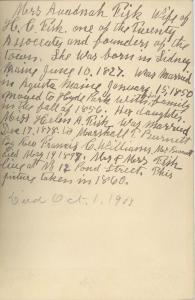 Mrs Awadnah Fisk Wife of
H. C. Fisk. one of the Twenty
Associates and founders of the
town. She was born in Sidney
Maine June 10, 1827. Was Married
in Agusta Maine January 15, 1850
moved to Hyde Park with family
in the fall of 1856. Her daughter,
Miss Helen A. Fisk was Married
Dec 17, 1878. to Marshall T. Burnett
by Rev Francis C. Williams. Mr. Burnett
Died May 19 1898. Mr & Mrs Fisk
live at No 12 Pond Street. This
picture taken in 1860.
Died Oct. 1, 1908